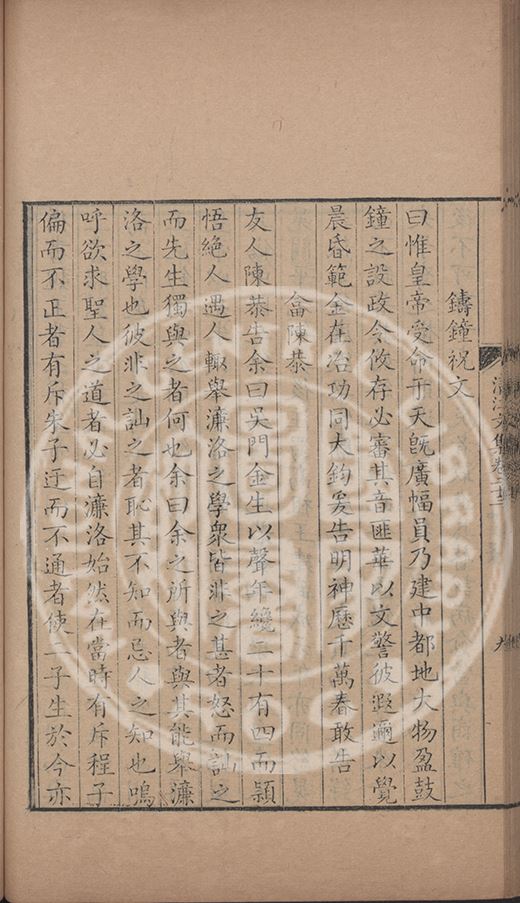 鑄鐘祝文
曰惟皇帝受命于天旣廣幅員乃建中都地大物盈鼓
鐘之設政令攸存必審其音匪華以文警彼遐邇以覺
晨昏範金在冶功同大鈞爰告明神歷千萬春敢告
畣陳恭
友人陳恭告余曰吳門金生以聲年纔二十有四而顥
悟絕人遇人輙舉濂洛之學衆皆非之甚者怒而訕之
而先生獨與之者何也余曰余之所與者與其能舉濂
洛之學也彼非之訕之者恥其不知而忌人之知也嗚
呼欲求聖人之道者必自濂洛始然在當時有斥程子
偏而不正者有斥朱子迂而不通者使二子生於今亦